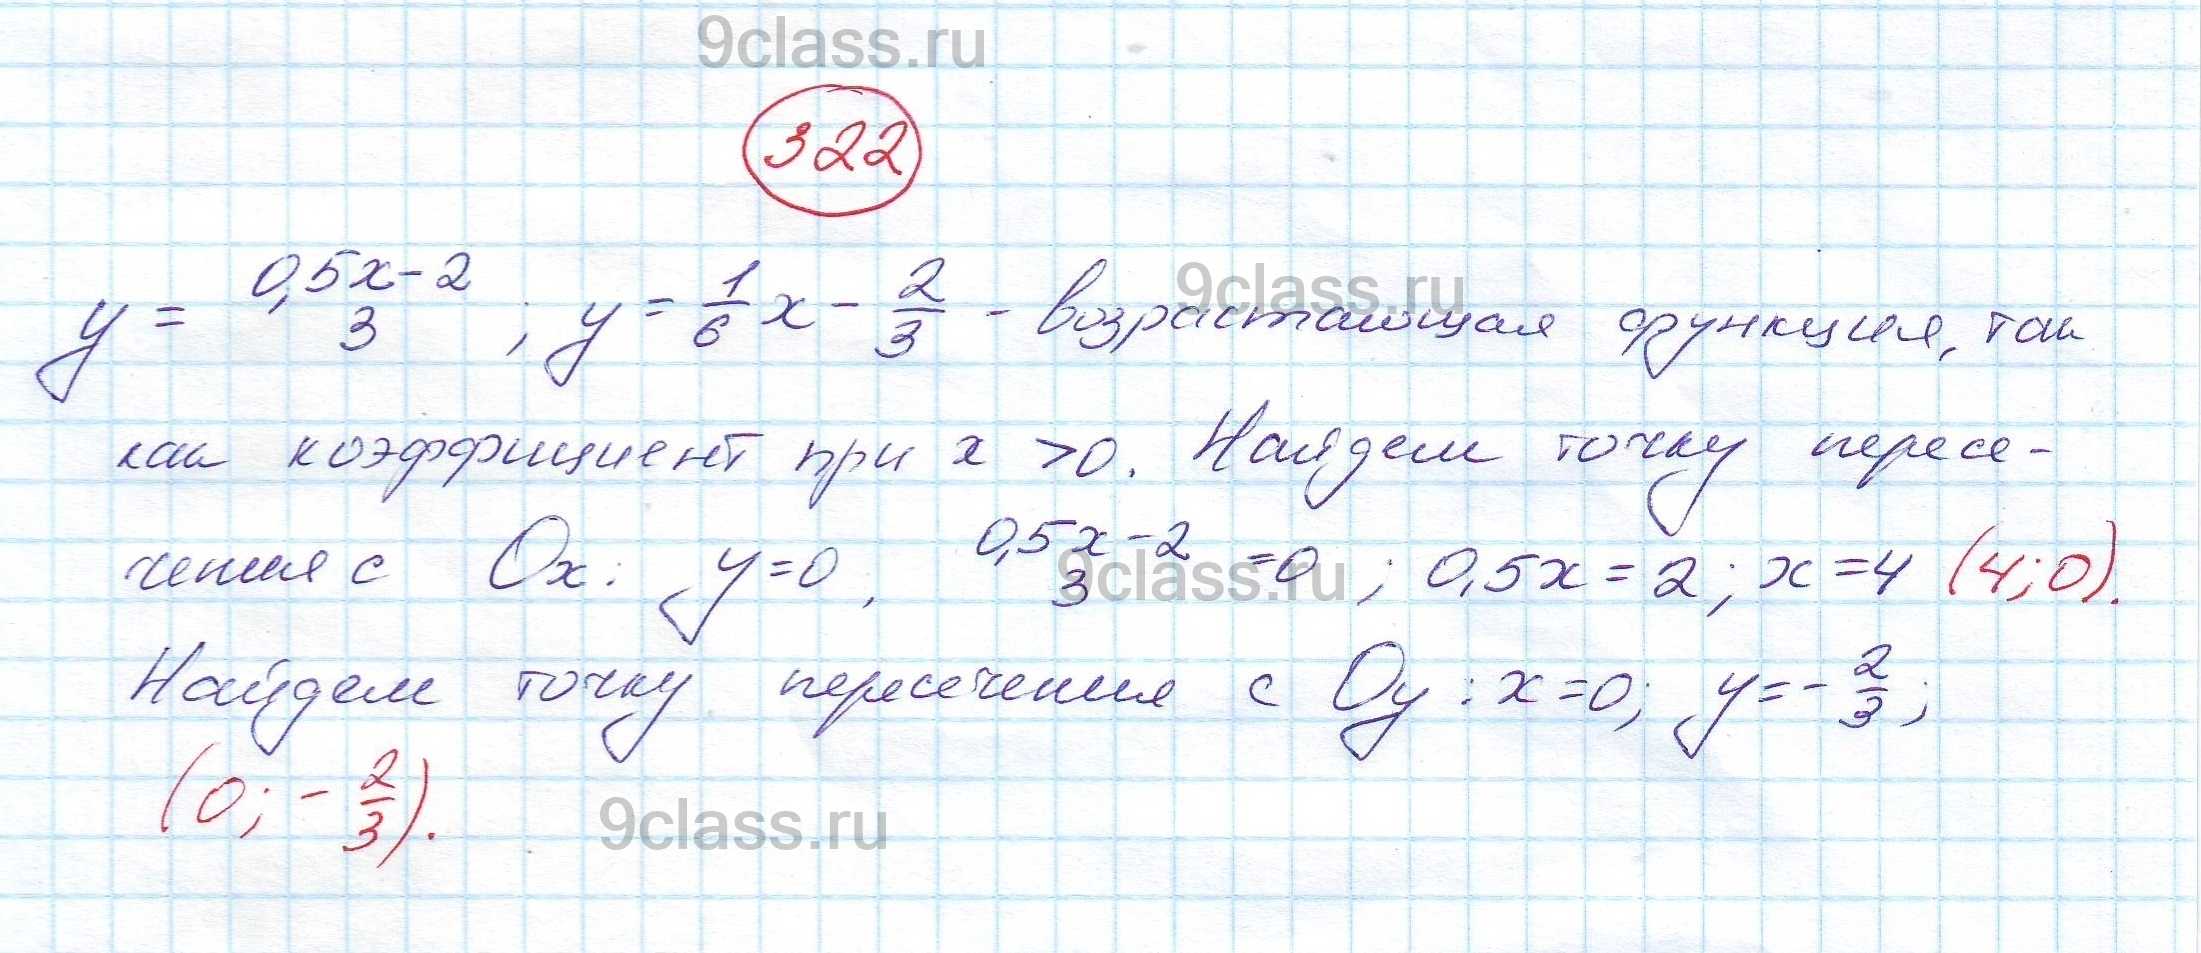 9class.ru
322
y = 0,5x-2/3 ; y = 1/6 x - 2/3 - возрастающая функция, так
9class.ru
как коэффициент при x >0. Найдем точку пересе-
чения с Ox: y=0, 0,5x-2/3 =0 ; 0,5x=2; x=4 (4;0).
9class.ru
Найдем точку пересечения с Oy: x=0; y=-2/3;
(0; -2/3).
9class.ru